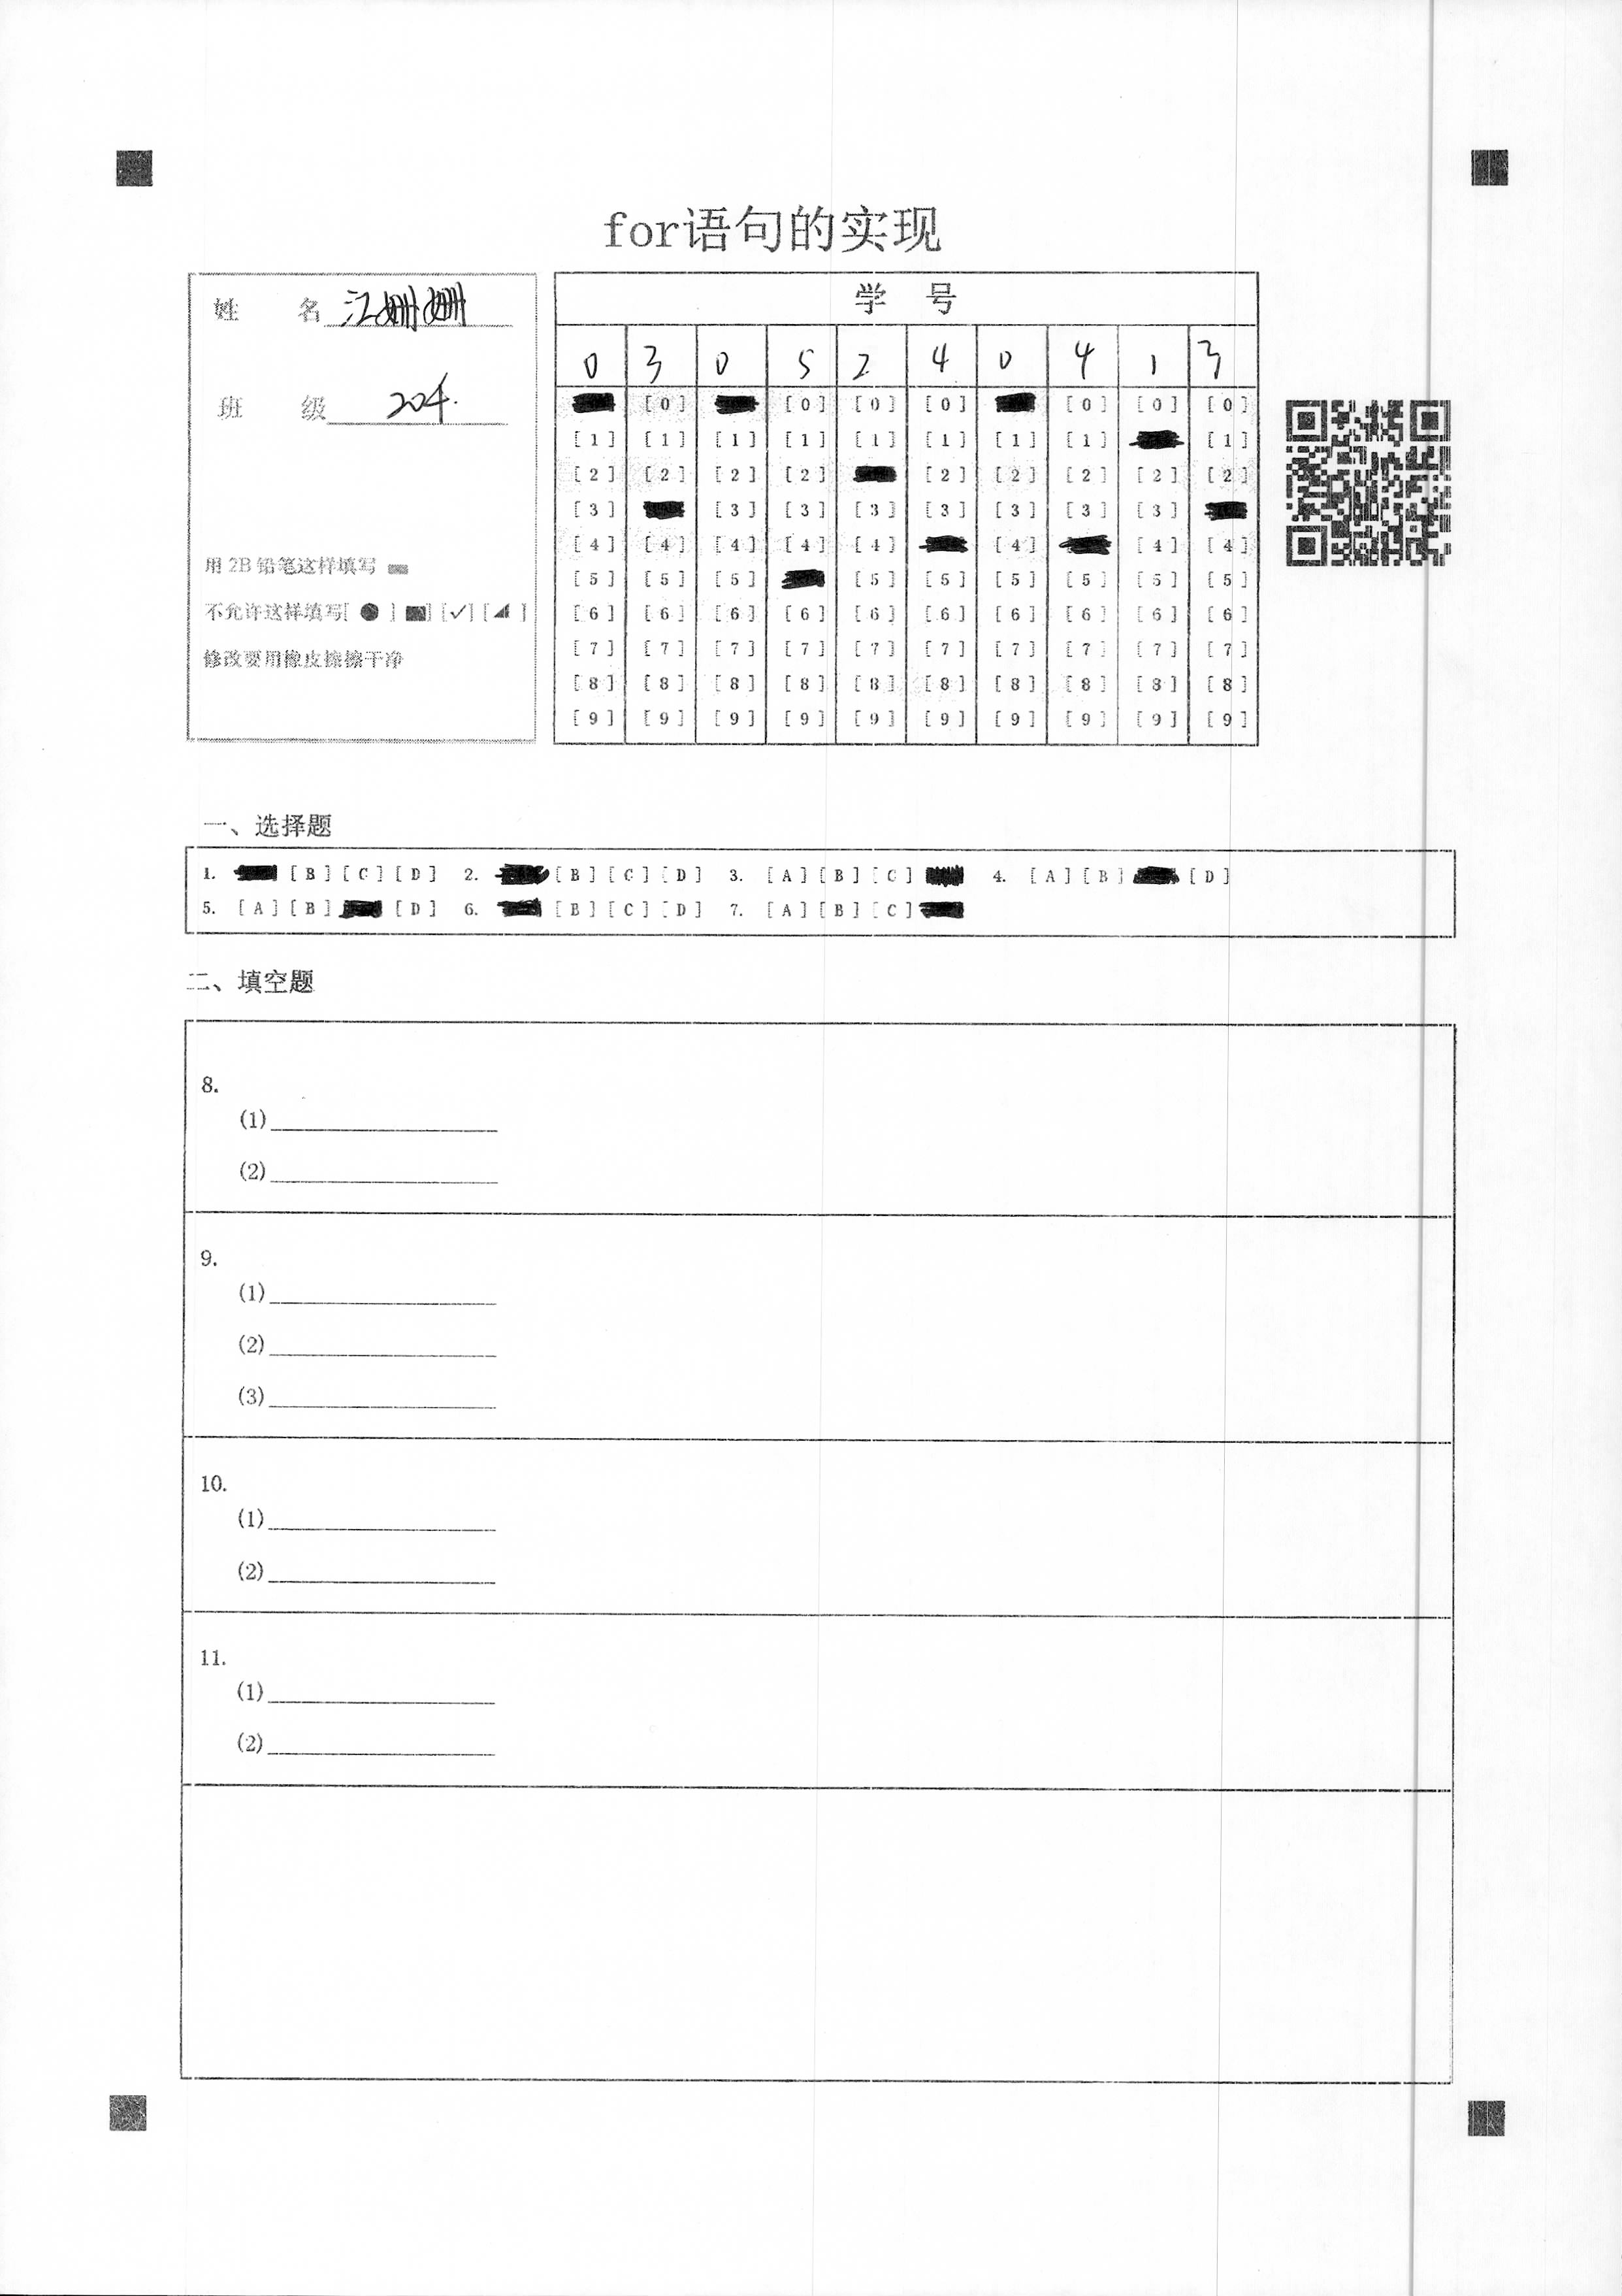 for语句的实现
姓 名 江姗姗
班 级 204.
用 2B 铅笔这样填写
不允许这样填写[ ● ] [■] [✓] [◢ ]
修改要用橡皮擦擦干净
学 号
0 3 0 5 2 4 0 4 1 3
[0] [0] [0] [0] [0] [0] [0]
[1] [1] [1] [1] [1] [1] [1] [1] [1]
[2] [2] [2] [2] [2] [2] [2] [2] [2]
[3] [3] [3] [3] [3] [3] [3] [3]
[4] [4] [4] [4] [4] [4] [4] [4]
[5] [5] [5] [5] [5] [5] [5] [5] [5]
[6] [6] [6] [6] [6] [6] [6] [6] [6] [6]
[7] [7] [7] [7] [7] [7] [7] [7] [7] [7]
[8] [8] [8] [8] [8] [8] [8] [8] [8] [8]
[9] [9] [9] [9] [9] [9] [9] [9] [9] [9]
一、选择题
1. [B] [C] [D] 2. [B] [C] [D] 3. [A] [B] [C] 4. [A] [B] [D]
5. [A] [B] [D] 6. [B] [C] [D] 7. [A] [B] [C]
二、填空题
8.
(1)
(2)
9.
(1)
(2)
(3)
10.
(1)
(2)
11.
(1)
(2)